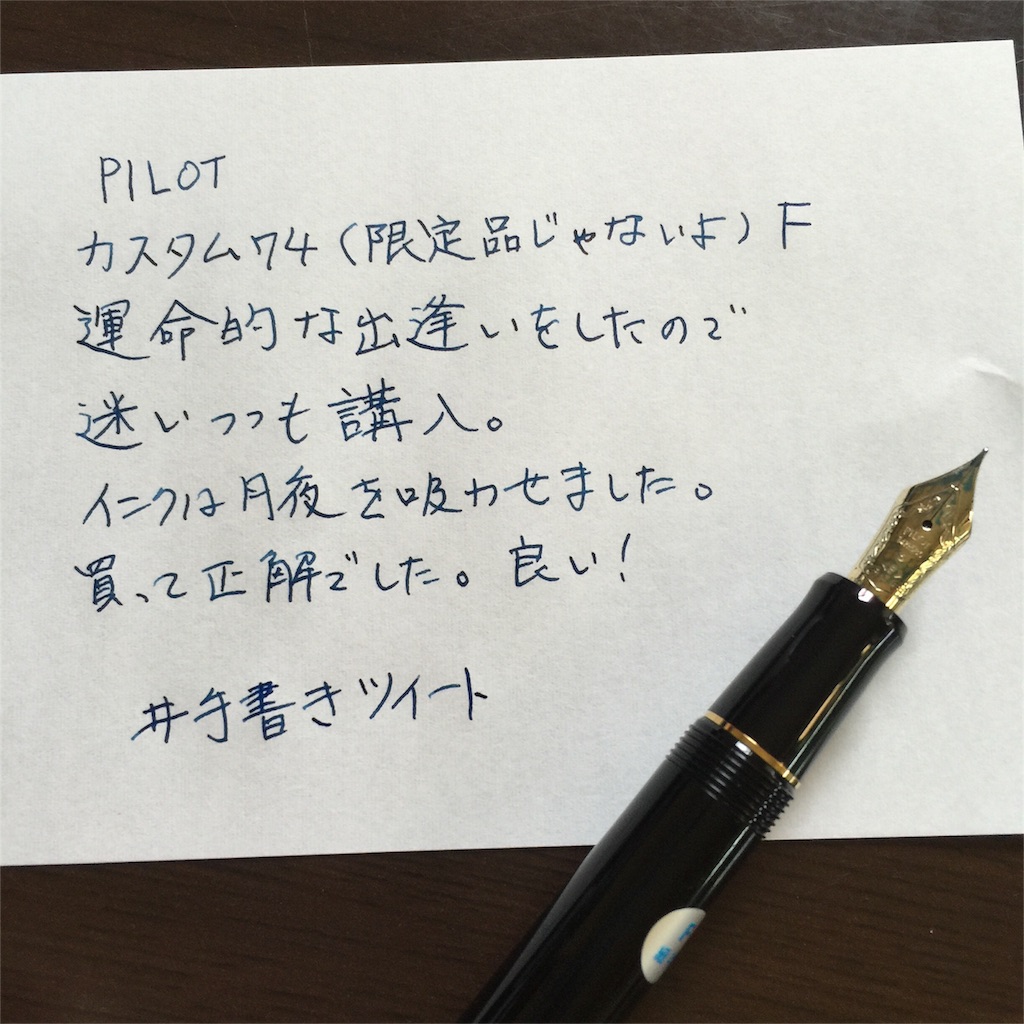 PILOT
カスタム74（限定品じゃないよ）F
運命的な出逢いをしたので
迷いつつも講入。
インクは月夜を吸わせました。
買って正解でした。良い！
#手書きツイート